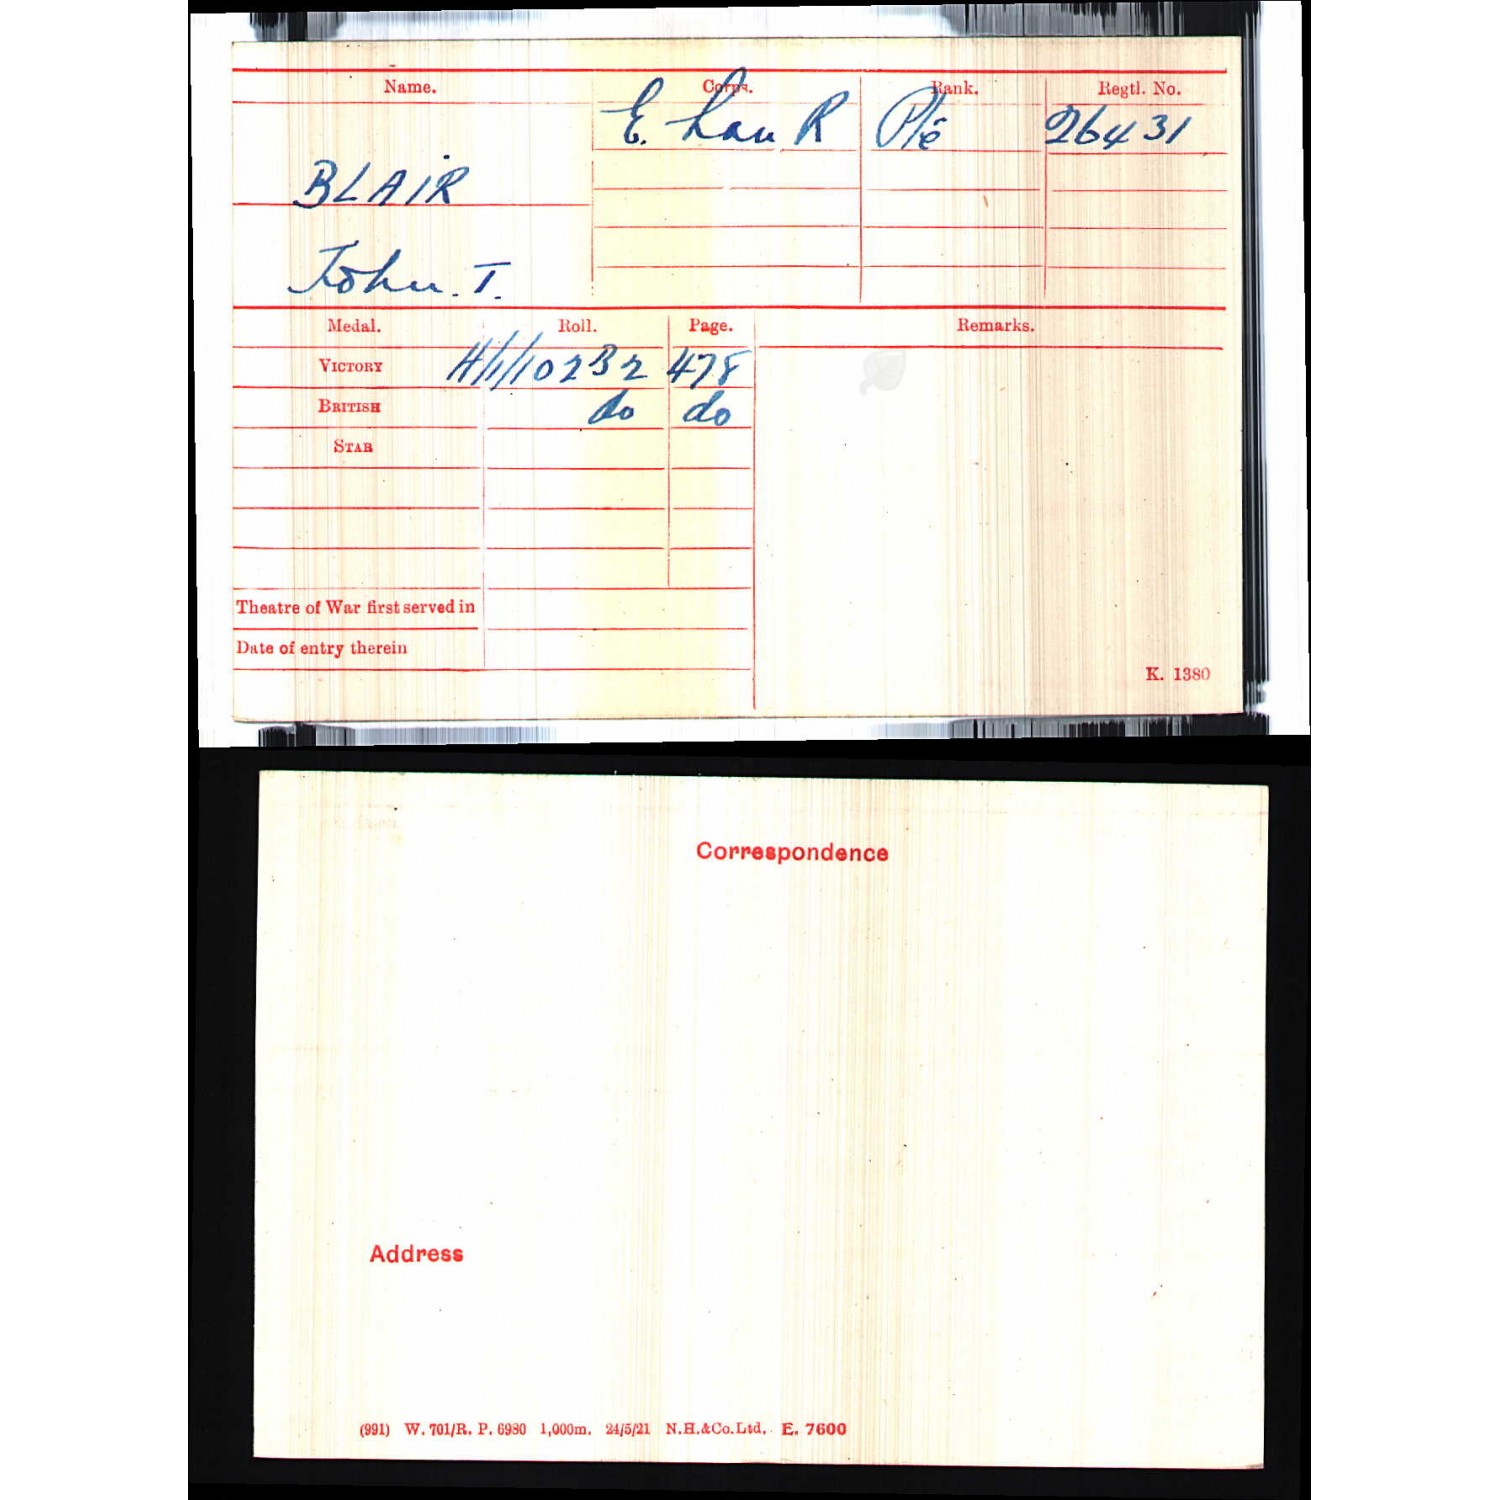 Name. Corps. Rank. Regtl. No.
E. Lan R Pte 26431
BLAIR
John. T.
Medal. Roll. Page. Remarks.
VICTORY H/1/102B2 478
BRITISH do do
STAR
Theatre of War first served in
Date of entry therein
K. 1380
Correspondence
Address
(991) W. 701/R. P. 6980 1,000m. 24/5/21 N.H.&Co.Ltd. E. 7600